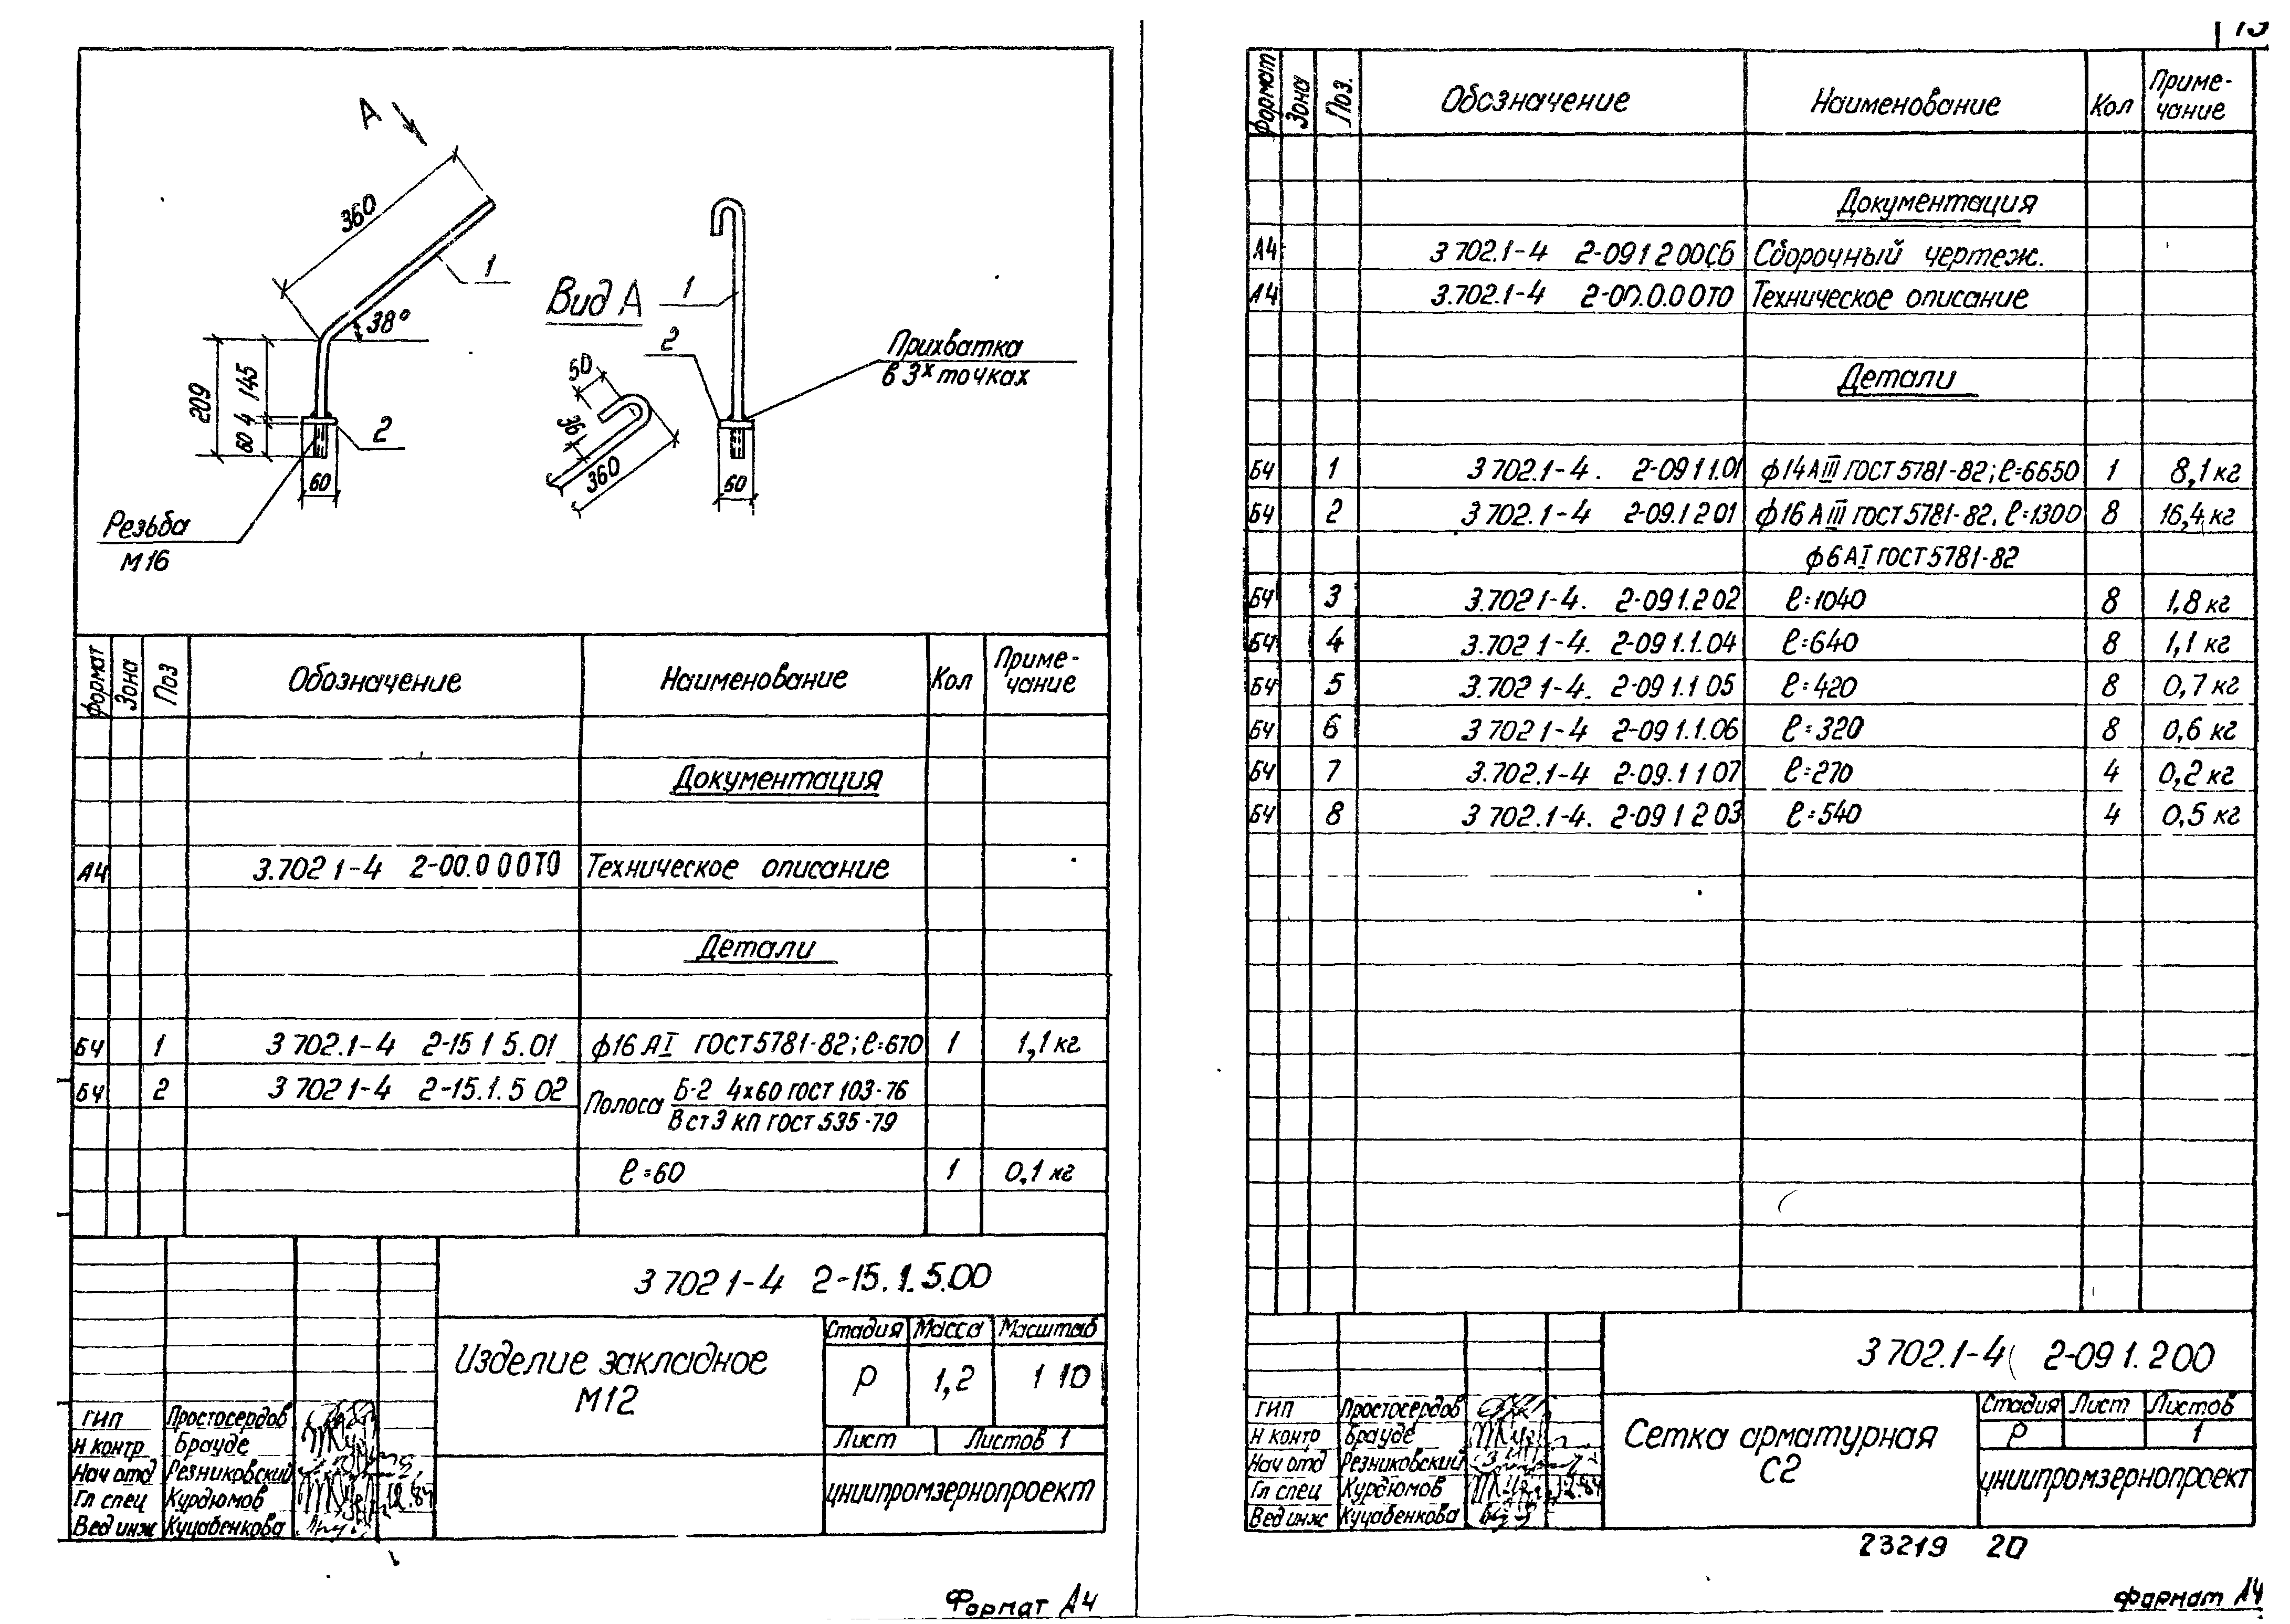 А
360
38°
1
209
145
4
60
2
60
Резьба
М16
Вид А
1
2
Прихватка
в 3х точках
50
36
360
60
Формат Зона Поз Обозначение Наименование Кол Приме-
чание
Документация
А4 3.702 1-4 2-00.0 0 0ТО Техническое описание
Детали
БЧ 1 3 702.1-4 2-15 1 5.01 ф16 АI ГОСТ 5781-82; ℓ=670 1 1,1 кг
БЧ 2 3 702 1-4 2-15.1.5 02 Полоса Б-2 4х60 ГОСТ 103-76
В ст 3 кп ГОСТ 535-79
ℓ=60 1 0,1 кг
3 702 1-4 2-15.1.5.00
Изделие закладное
М12
Стадия Масса Масштаб
Р 1,2 1 10
Лист Листов 1
ЦНИИпромзернопроект
ГИП Простосердов
Н контр Брауде
Нач отд Резниковский
Гл спец Курдюмов 12.84
Вед инж Куцабенкова
Формат А4
Формат Зона Поз. Обозначение Наименование Кол Приме-
чание
Документация
А4 3 702.1-4 2-09 1 2 00СБ Сборочный чертеж.
А4 3.702.1-4 2-00.0.0 0ТО Техническое описание
Детали
БЧ 1 3 702.1-4. 2-09 1 1.01 ф14 АIII ГОСТ 5781-82; ℓ=6650 1 8,1 кг
БЧ 2 3 702.1-4 2-09.1 2 01 ф16 АIII ГОСТ 5781-82, ℓ=1300 8 16,4 кг
ф6 АI ГОСТ 5781-82
БЧ 3 3.702 1-4. 2-09 1.2 02 ℓ=1040 8 1,8 кг
БЧ 4 3.702 1-4. 2-09 1.1.04 ℓ=640 8 1,1 кг
БЧ 5 3.702 1-4. 2-09 1.1 05 ℓ=420 8 0,7 кг
БЧ 6 3 702 1-4 2-09 1.1.06 ℓ=320 8 0,6 кг
БЧ 7 3.702.1-4 2-09.1 1 07 ℓ=270 4 0,2 кг
БЧ 8 3 702.1-4. 2-09 1 2 03 ℓ=540 4 0,5 кг
3 702.1-4 2-09 1.2 00
Сетка арматурная
С2
Стадия Лист Листов
Р 1
ЦНИИпромзернопроект
ГИП Простосердов
Н контр Брауде
Нач отд Резниковский
Гл спец Курдюмов 12.84
Вед инж Куцабенкова
23219 20
Формат А4